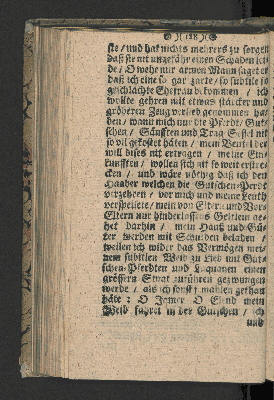 ſie / und hat nichts mehrers zu ſorgen
daß ſie nit ungefähr einen Schaden lei-
de / O wehe mir armen Mann ſaget er
daß ich eine ſo gar zarte / ſo ſubtile ſo
geſchlachte Ehefrau bekommen / ich
wollte gehren mit etwas ſtärcker und
gröberen Zeug verlieb genommen ha-
ben / wann mich nur die Pferdt / Gut-
ſchen / Sänfften und Trag-Seſſel nit
ſo vil gekoſtet häten / mein Beutel der
will diſes nit ertragen / meine Ein-
künfften / wollen ſich nit ſo weit erſtre-
cken / und wäre nöthig daß ich den
Haaber welchen die Gutſchen-Pferdt
verzehren / vor mich und meine Leuth
verſpeiſete / mein von Eltern und Vor-
Eltern nur hinderlaſſnes Geltlein ge-
het darhin / mein Hauß und Gü-
ter werden mit Schulden beladen /
weilen ich wider das Vermögen mei-
nem ſubtilen Weib zu Lieb mit Gut-
ſchen-Pferdten und Laquayen einen
gröſſern Staat zuführen gezwungen
werde / als ich ſonſt mahlen gethan
häte: O Jamer O Elend mein
Weib fahret in der Gutſchen / ich
und